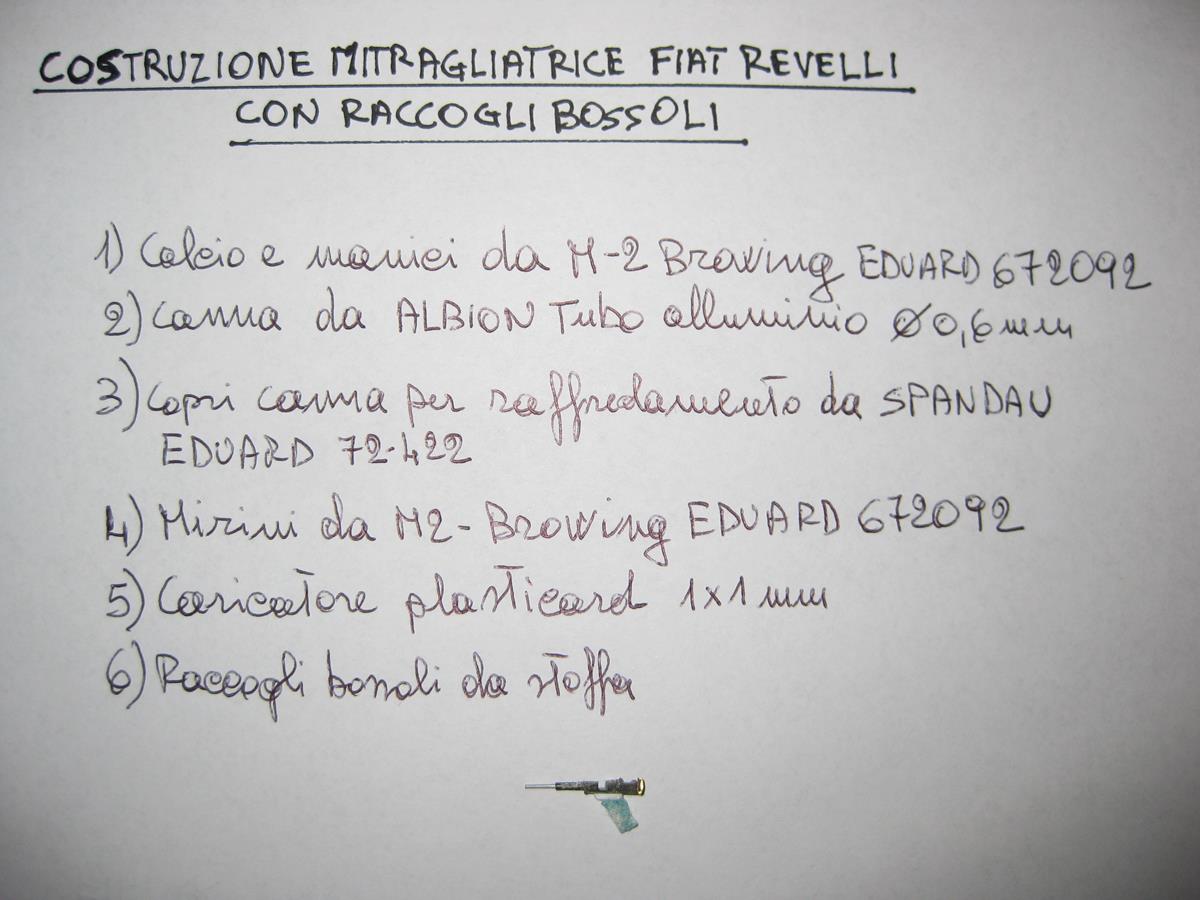 COSTRUZIONE MITRAGLIATRICE FIAT REVELLI
CON RACCOGLI BOSSOLI
1) Calcio e manici da M-2 Browing EDUARD 672092
2) Canna da ALBION Tubo alluminio Ø 0,6 mm
3) Copri canna per raffredamento da SPANDAU
EDUARD 72-422
4) Mirini da M2-Browing EDUARD 672092
5) Caricatore plasticard 1x1 mm
6) Raccogli bossoli da stoffa